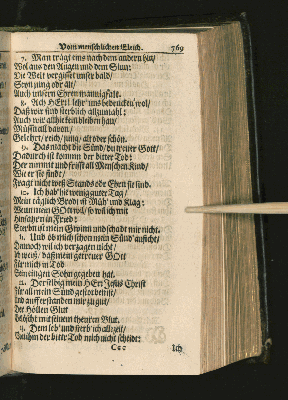 Vom menschlichen Elend. 769
7. Man trägt eins nach dem andern hin/
Wol aus den Augen und dem Sinn:
Die Welt vergisset unser bald/
Sey jung oder alt/
Auch unsern Ehren mannigfalt.
8. Ach HErr lehr' uns bedencken wol/
Daß wir sind sterblich allzumahl:
Auch wir allhie kein bleiben han/
Müssn all davon/
Gelehrt/ reich/ jung/ alt oder schön.
9. Das macht die Sünd/ du treuer Gott/
Dadurch ist kommn der bitter Tod:
Der nimmt und frisst all Menschen Kind/
Wie er sie findt/
Fragt nicht weß Stands oder Ehrn sie sind.
10. Ich hab' hie wenig guter Tag/
Mein täglich Brod ist Müh' und Klag:
Wenn mein GOtt wil/ so wil ich mit
Hinfahrn in Fried:
Sterbn ist mein Gewinn und schadt mir nicht.
11. Und ob mich schon mein Sünd' anficht/
Dennoch wil ich verzagen nicht:
Ich weiß/ daß mein getreuer GOtt
Für mich in Tod
Sein eingen Sohn gegeben hat.
12. Derselbig mein HErr Jesus Christ
Für all mein Sünd gestorben ist/
Und aufferstanden mir zu gut/
Die Höllen Glut
Gelöscht mit seinem theuren Blut.
13. Dem leb' und sterb' ich allzeit/
Von ihm der bittr Tod mich nicht scheidt:
Ccc Ich